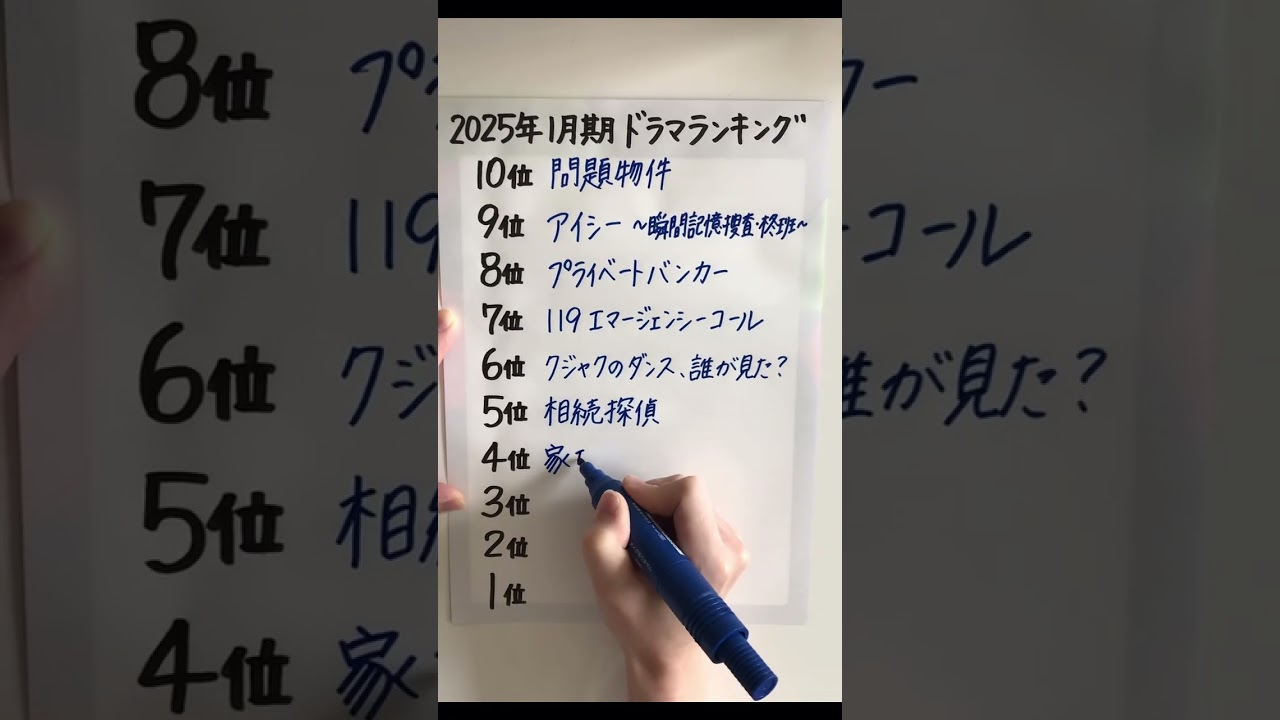 2025年1月期ドラマランキング
10位 問題物件
9位 アイシー ～瞬間記憶捜査・柊班～
8位 プライベートバンカー
7位 119エマージェンシーコール
6位 クジャクのダンス、誰が見た?
5位 相続探偵
4位 家
3位
2位
1位